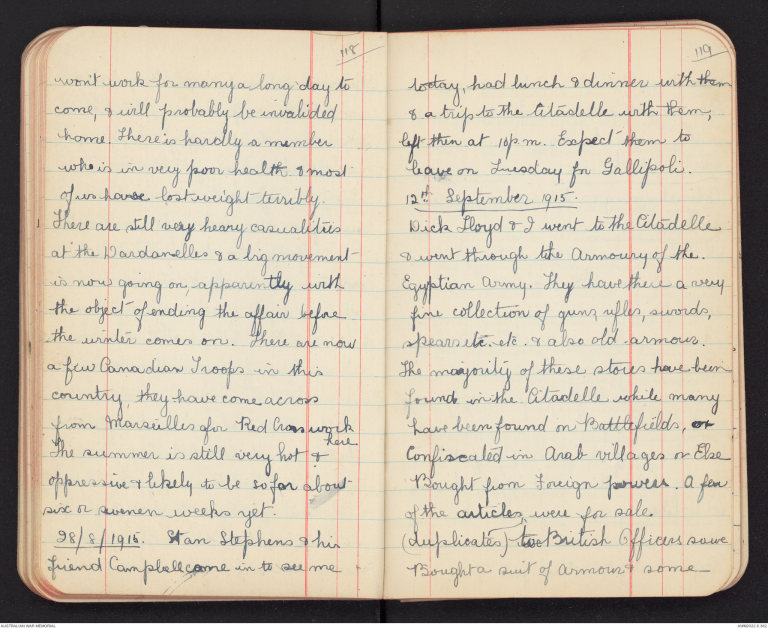 118
won't work for many a long day to
come, & will probably be invalided
home. There is hardly a member
who is in very poor health & most
of us have lost weight terribly.
There are still very heavy casualities
at the Dardanelles & a big movement
is now going on, apparently with
the object of ending the affair before
the winter comes on. There are now
a few Canadian Troops in this
country, they have come across
from Marseilles for Red Cross work
here
The summer is still very hot &
oppressive & likely to be so for about
six or sevenen weeks yet.
28/8/1915. Stan Stephens & his
friend Campbell came in to see me
119
today, had lunch & dinner with them
& a trip to the Citadelle with them,
left then at 10p.m. Expect them to
leave on Tuesday for Gallipoli.
12th September 1915.
Dick Lloyd & I went to the Citadelle
& went through the Armoury of the.
Egyptian Army. They have there a very
fine collection of guns, rifles, swords,
spears etc. etc. & also old armour.
The majority of these stores have been
found in the Citadelle while many
have been found on Battlefields, or
Confiscated in Arab villages or Else
Bought from Foreign powers. A few
of the articles, were for sale.
(duplicates) to British Officers so we
Bought a suit of Armour & some
AUSTRALIAN WAR MEMORIAL